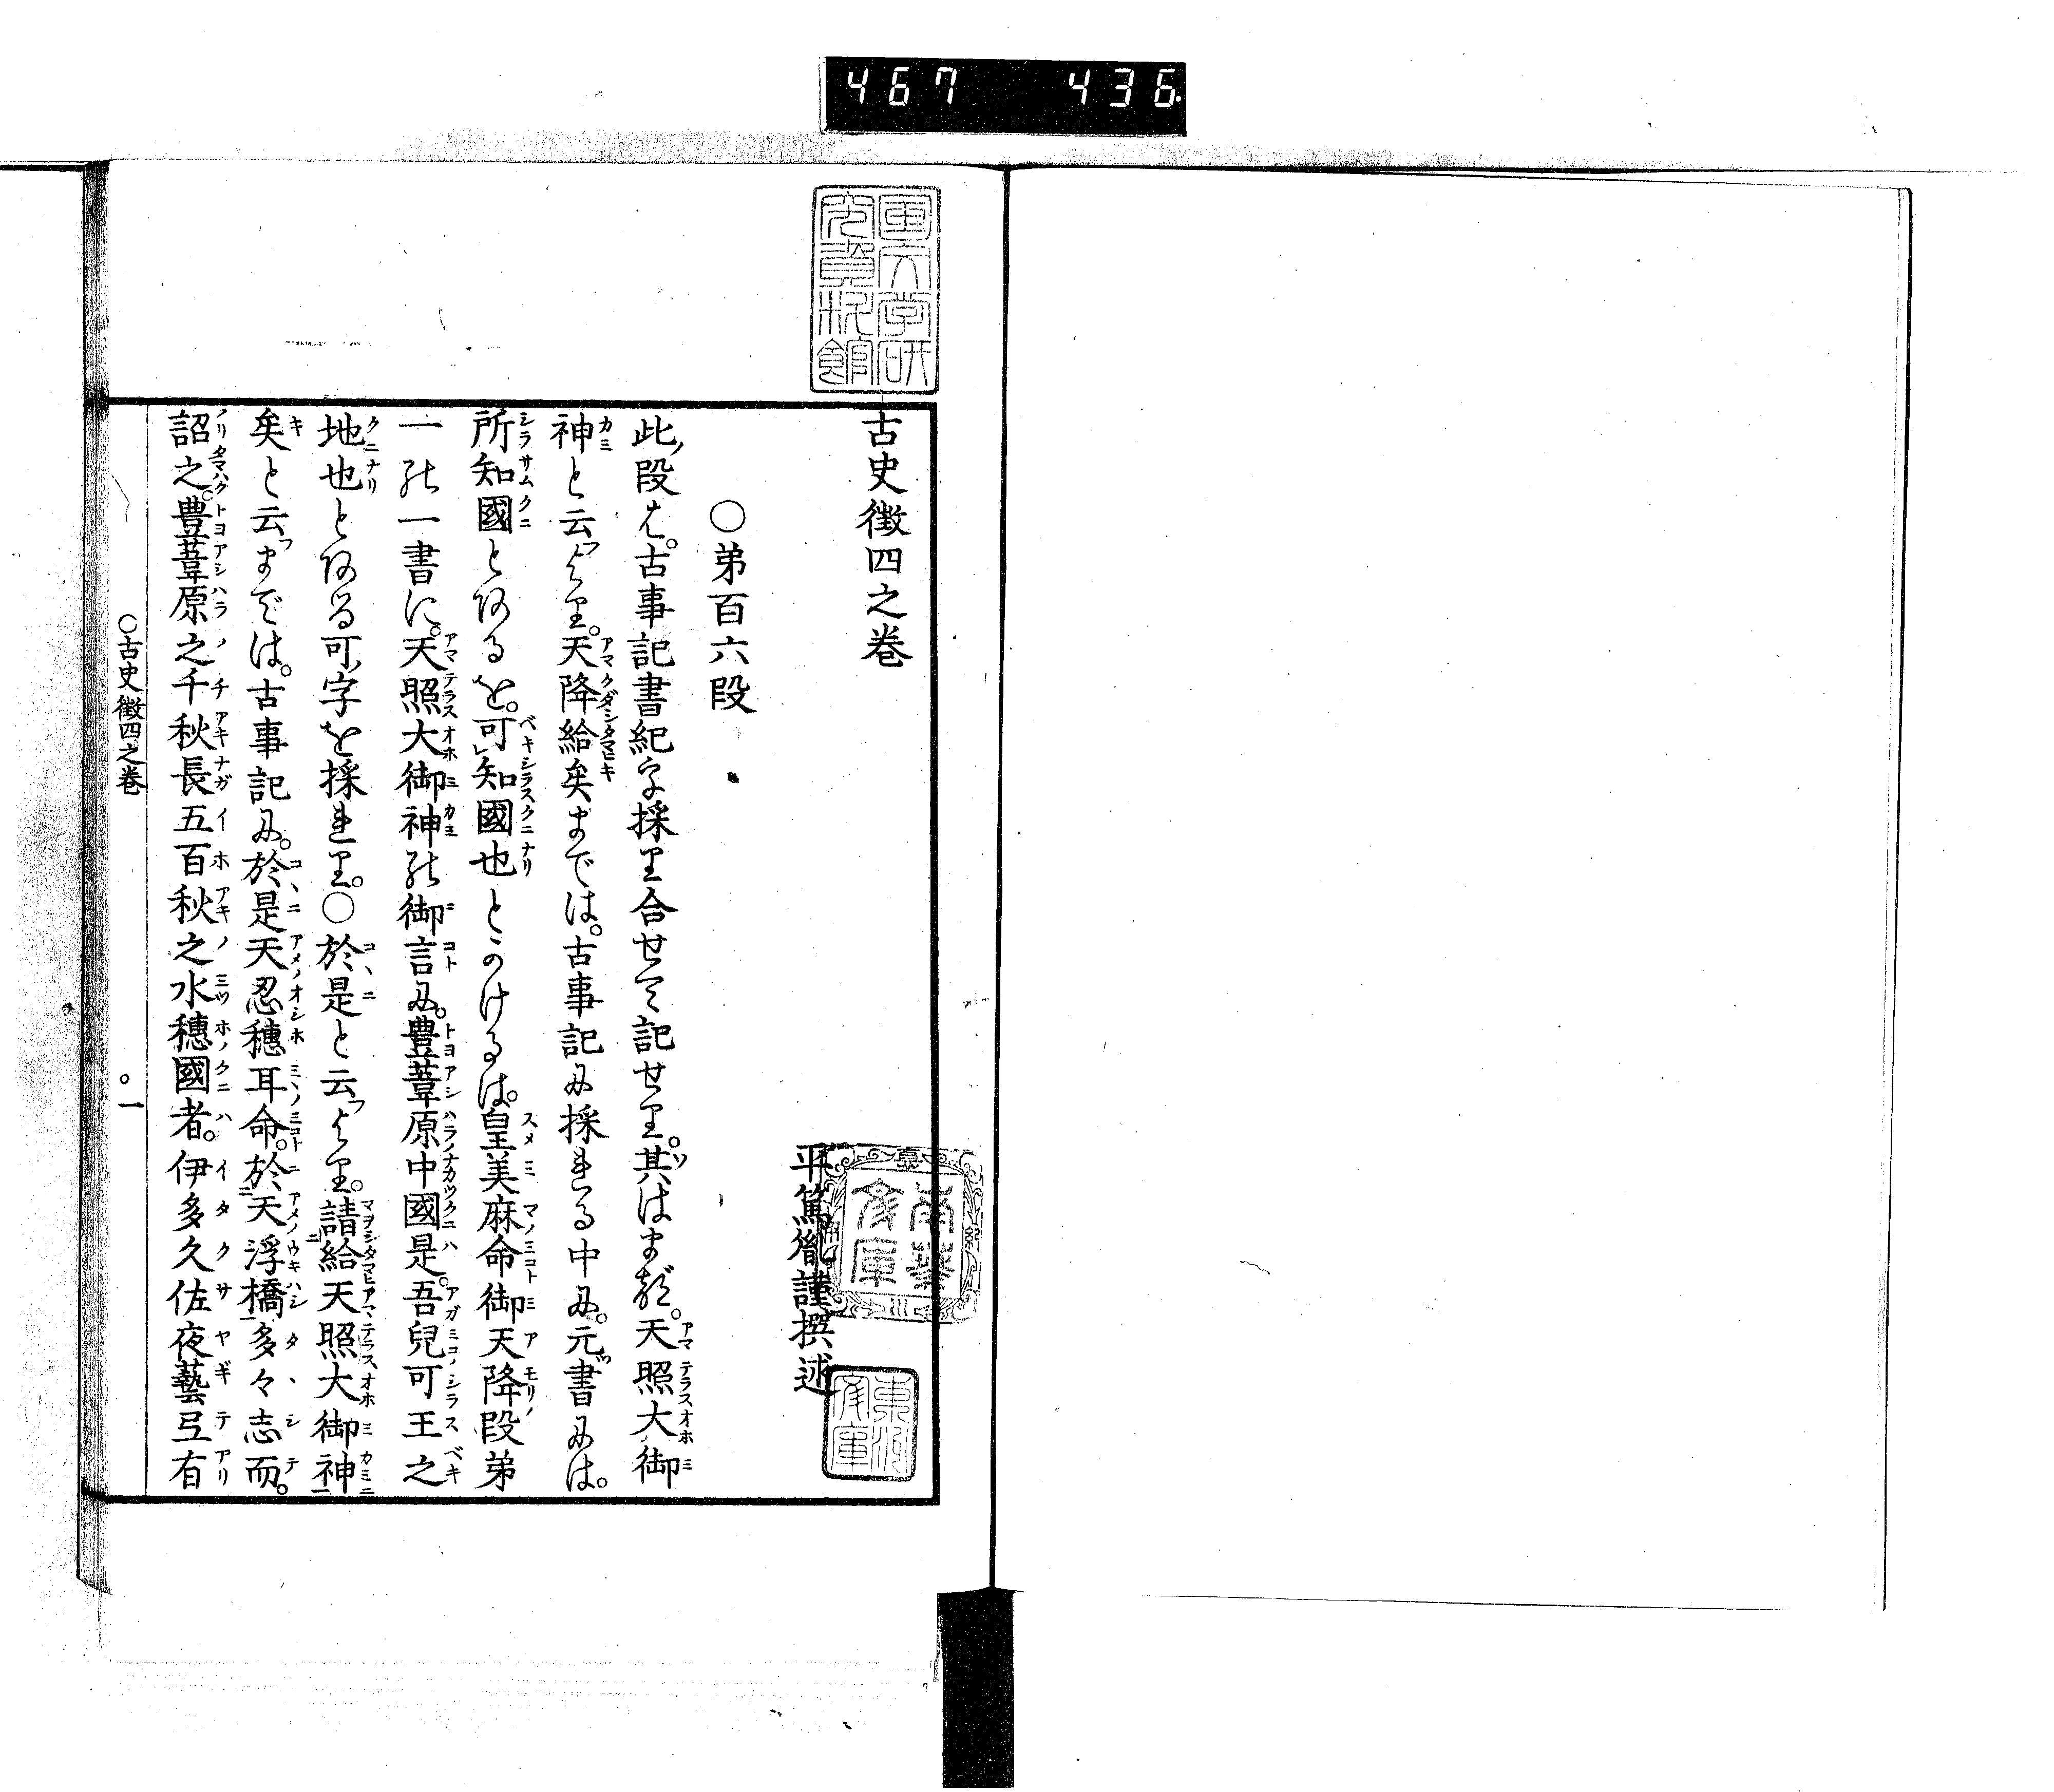 467 436
国文学研
究資料館
古史徴四之巻
平篤胤謹撰述
南葵
文庫
〇弟百六段
此ノ段は。古事記書紀を採り合せて記せり。其ツはまづ。天照大御
神と云フより。天降給矣までは。古事記に採れる中に。元ツ書には。
所知國とあるを。可知國也とかけるは。皇美麻命御天降段弟
一の一書に。天照大御神の御言に。豊葦原中國是。吾兒可王之
地也とある可ノ字を採れり。〇於是と云フより。請給天照大御神
矣と云フまでは。古事記に。於是天忍穗耳命。於天浮橋多々志而。
詔之。豊葦原之千秋長五百秋之水穗國者。伊多久佐夜藝弖有
〇古史徴四之巻
〇一